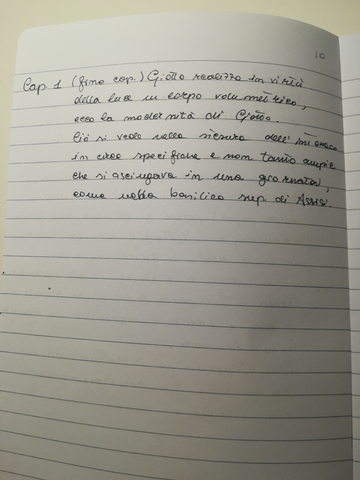 10
Cap 1 (fine cap.) Giotto realizza in virtù
della luce un corpo volumetrico,
ecco la modernità di Giotto.
Ciò si vede nella stesura dell'intonaco
in aree specifiche e non tanto ampie
che si asciugava in una giornata,
come nella basilica sup di Assisi.